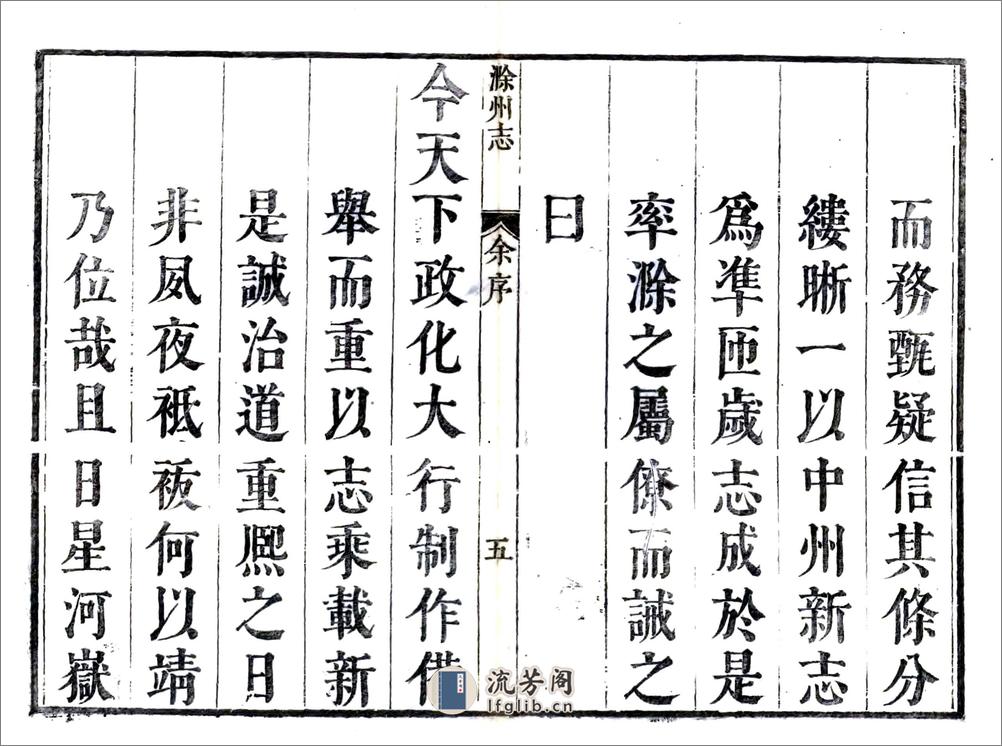 而務甄疑信其條分
縷晰一以中州新志
爲準匝歲志成於是
率滁之屬僚而誡之
曰
滁州志 余序 五
今天下政化大行制作備
舉而重以志乘載新
是誠治道重熈之日
非夙夜祗祓何以靖
乃位哉且日星河嶽
流芳阁
lfglib.cn